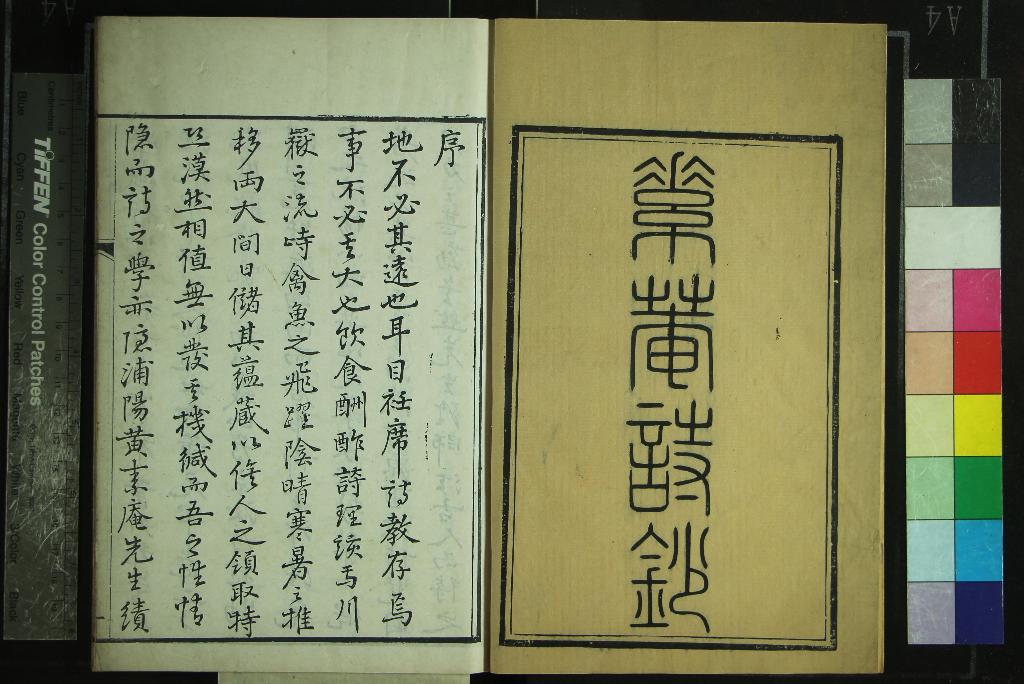 素菴詩鈔
序
地不必其遠也耳目衽席詩教存焉
事不必其大也飲食酬酢詩理該焉川
嶽之流峙禽魚之飛躍陰晴寒暑之推
移兩大間日儲其蘊藏以俟人之領取時
漠然相值無以發其機緘而吾之性情
隐而詩之學亦隐浦陽黄素庵先生績
TIFFEN Color Control Patches
Centimetres
Blue
Cyan
Green
Yellow
Red
Magenta
White
3/Color
Black
A4
A4